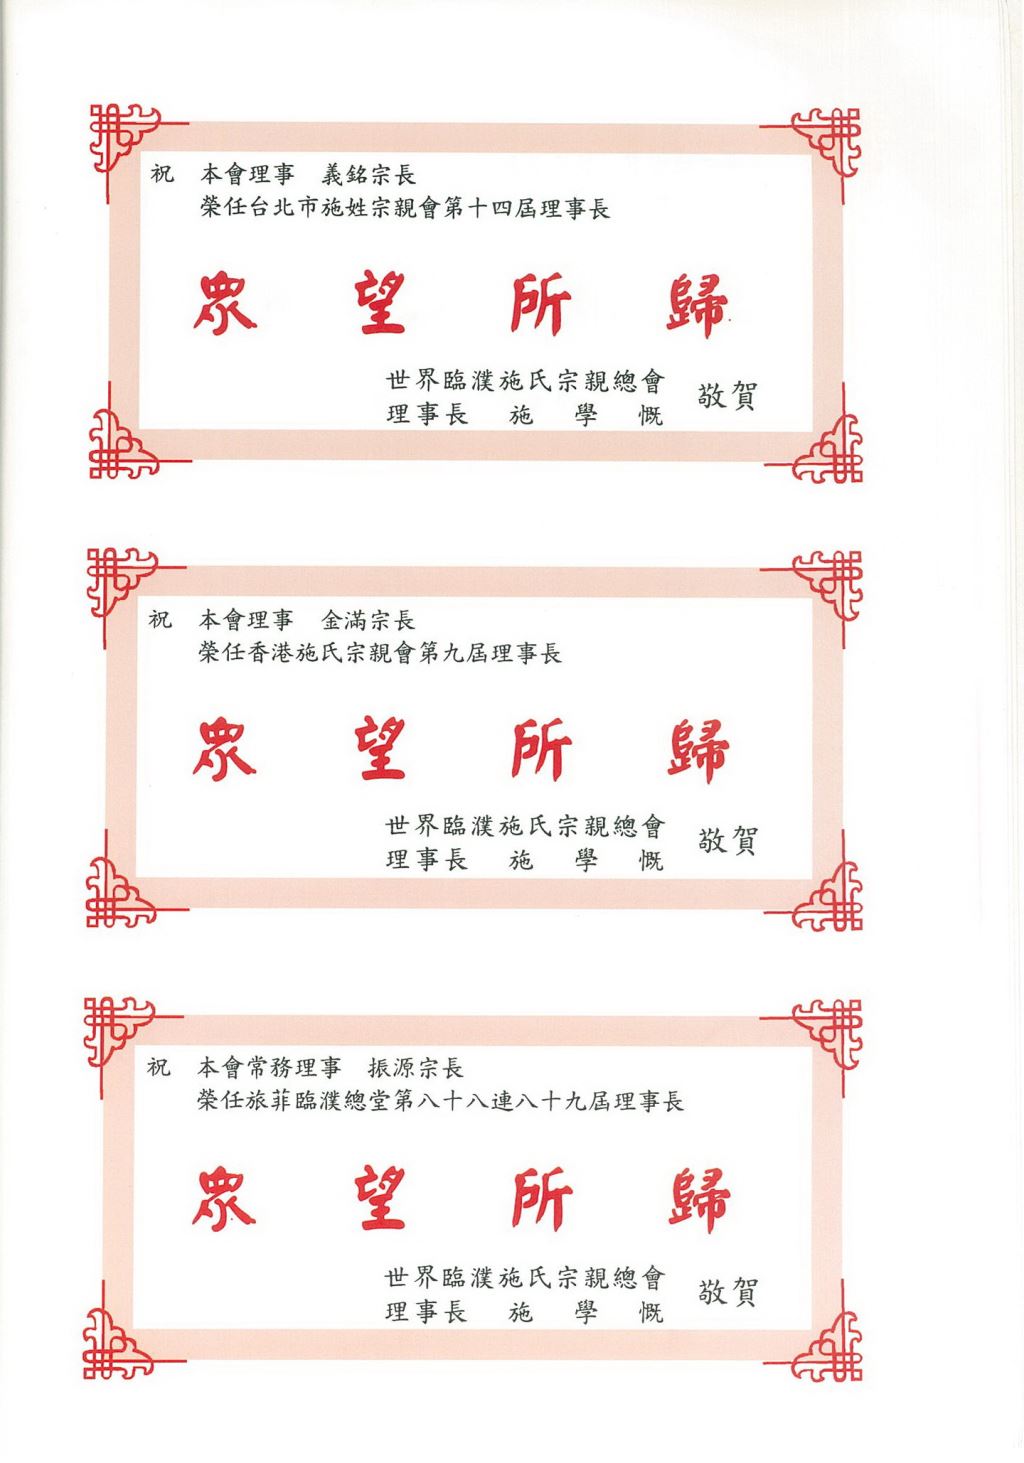 祝 本會理事 義銘宗長
榮任台北市施姓宗親會第十四屆理事長
眾望所歸
世界臨濮施氏宗親總會
理事長 施學慨
敬賀
祝 本會理事 金滿宗長
榮任香港施氏宗親會第九屆理事長
眾望所歸
世界臨濮施氏宗親總會
理事長 施學慨
敬賀
祝 本會常務理事 振源宗長
榮任旅菲臨濮總堂第八十八連八十九屆理事長
眾望所歸
世界臨濮施氏宗親總會
理事長 施學慨
敬賀